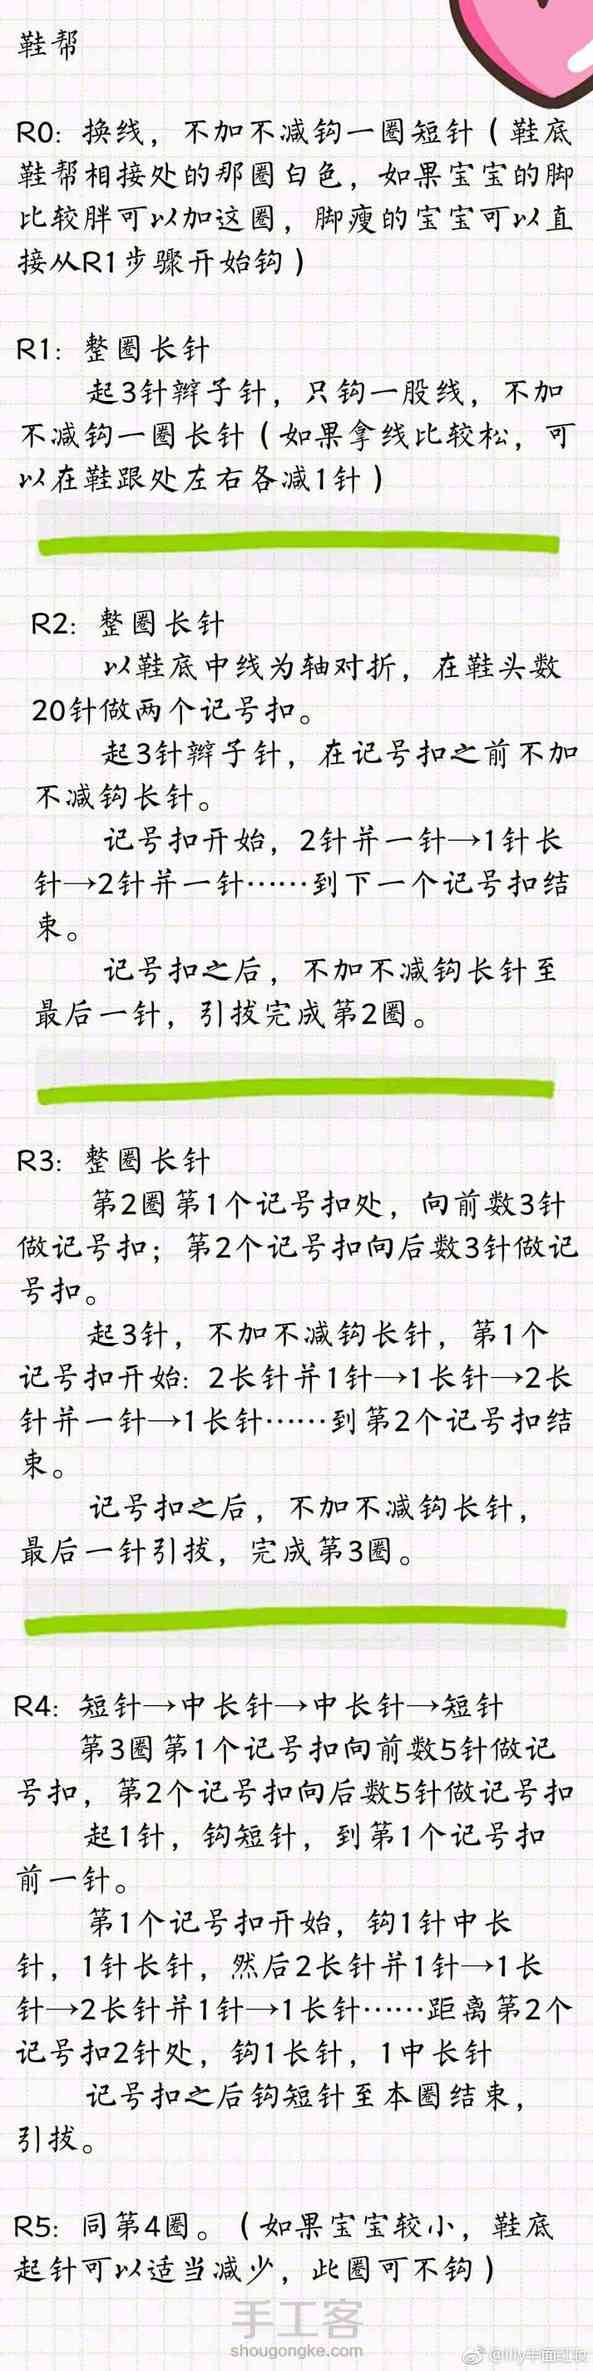 鞋帮
R0：换线，不加不减钩一圈短针（鞋底
鞋帮相接处的那圈白色，如果宝宝的脚
比较胖可以加这圈，脚瘦的宝宝可以直
接从R1步骤开始钩）
R1：整圈长针
起3针辫子针，只钩一股线，不加
不减钩一圈长针（如果拿线比较松，可
以在鞋跟处左右各减1针）
R2：整圈长针
以鞋底中线为轴对折，在鞋头数
20针做两个记号扣。
起3针辫子针，在记号扣之前不加
不减钩长针。
记号扣开始，2针并一针→1针长
针→2针并一针……到下一个记号扣结
束。
记号扣之后，不加不减钩长针至
最后一针，引拔完成第2圈。
R3：整圈长针
第2圈第1个记号扣处，向前数3针
做记号扣；第2个记号扣向后数3针做记
号扣。
起3针，不加不减钩长针，第1个
记号扣开始：2长针并1针→1长针→2长
针并一针→1长针……到第2个记号扣结
束。
记号扣之后，不加不减钩长针，
最后一针引拔，完成第3圈。
R4：短针→中长针→中长针→短针
第3圈第1个记号扣向前数5针做记
号扣，第2个记号扣向后数5针做记号扣
起1针，钩短针，到第1个记号扣
前一针。
第1个记号扣开始，钩1针中长
针，1针长针，然后2长针并1针→1长
针→2长针并1针→1长针……距离第2个
记号扣2针处，钩1长针，1中长针
记号扣之后钩短针至本圈结束，
引拔。
R5：同第4圈。（如果宝宝较小，鞋底
起针可以适当减少，此圈可不钩）
手工客
shougongke.com
@lily半面红妆